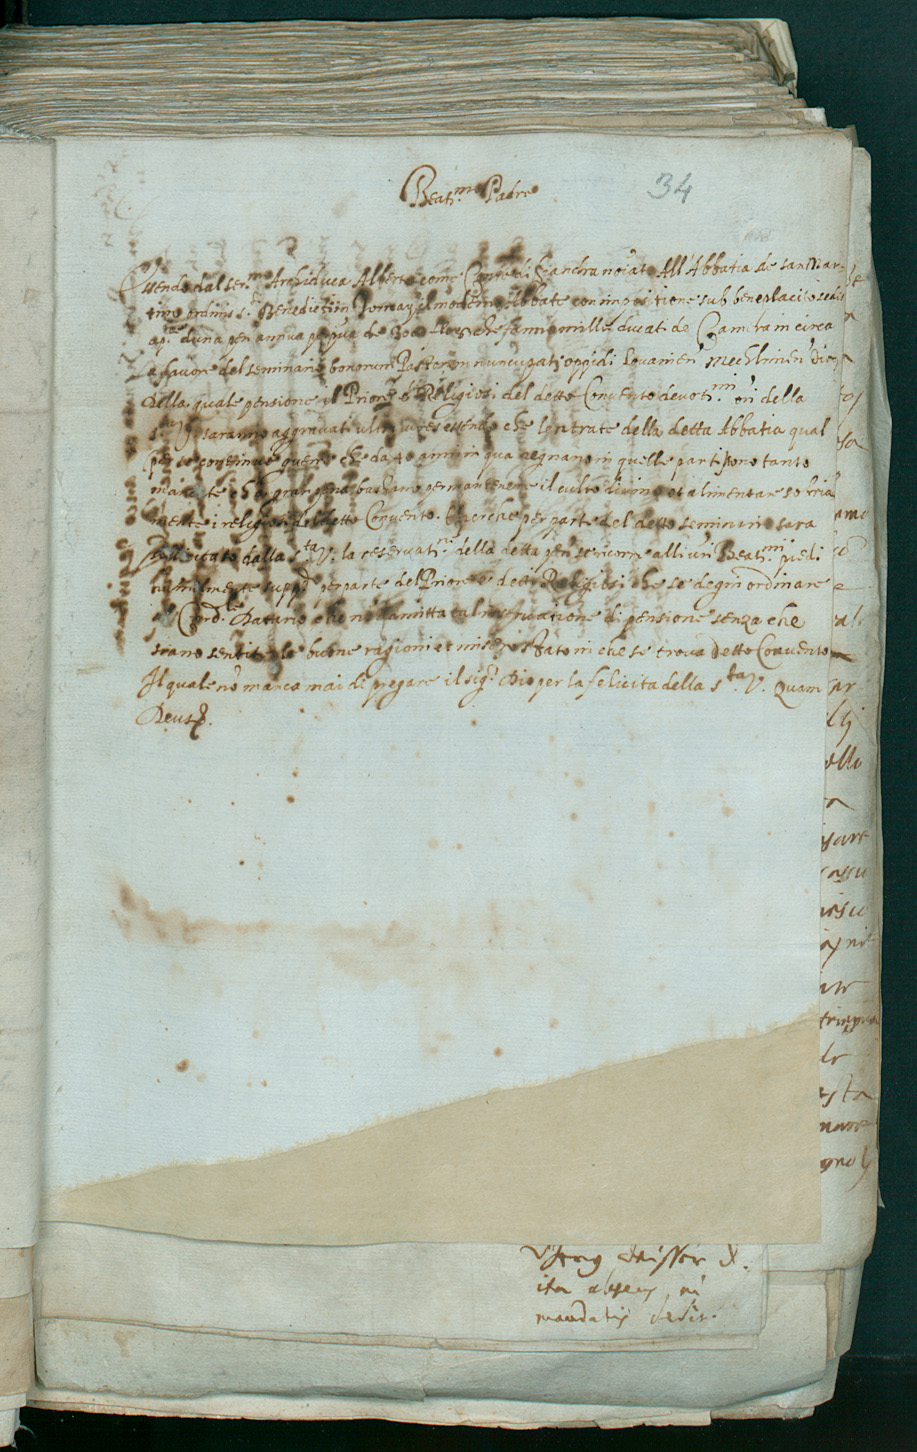 34
Beat.mo Padre
Essendo dal ser.mo Arciduca Alberto come Conte di Fiandra noiato All'Abbatia de san Mar-
tino ordinis s.ti Benedicti in Tornay il moderno Abbate con impositione sub beneplacito sedis
ap.cae d'una pen annua perpetua de che fanno mille ducati de Camera in circa
a favore del seminario bonorum Pastorum nuncupati oppidi Lovanien Mechlinien dioc.
Della quale pensione il Priore e Religiosi del detto Convento devoti.mi ori della
s.tà V. saranno aggravati essendo che le intrate della detta Abbatia qual
per le continue guerre che da 40 anni in qua regnano in quelle parti sono tanto
mancate che a gran pena bastano per mantenere il culto divino et alimentare sobria
mente i religiosi del detto Convento. E perche per parte del detto seminario sara
sollicitato dalla s.tà V. la reservati.ne della detta pen se ricorre alli suoi Beat.mi piedi
humilmente supp.do per parte del Priore e detti Religiosi che se degni ordinare
al Card.l Datario che nò admitta tal reservatione di pensione senza che
siano sentite le buone ragioni et misero stato in che se trova detto Convento
Il quale nò manca mai di pregare il sig.r Dio per la felicita della s.tà V. Quam
Deus &.
ita
mandatis